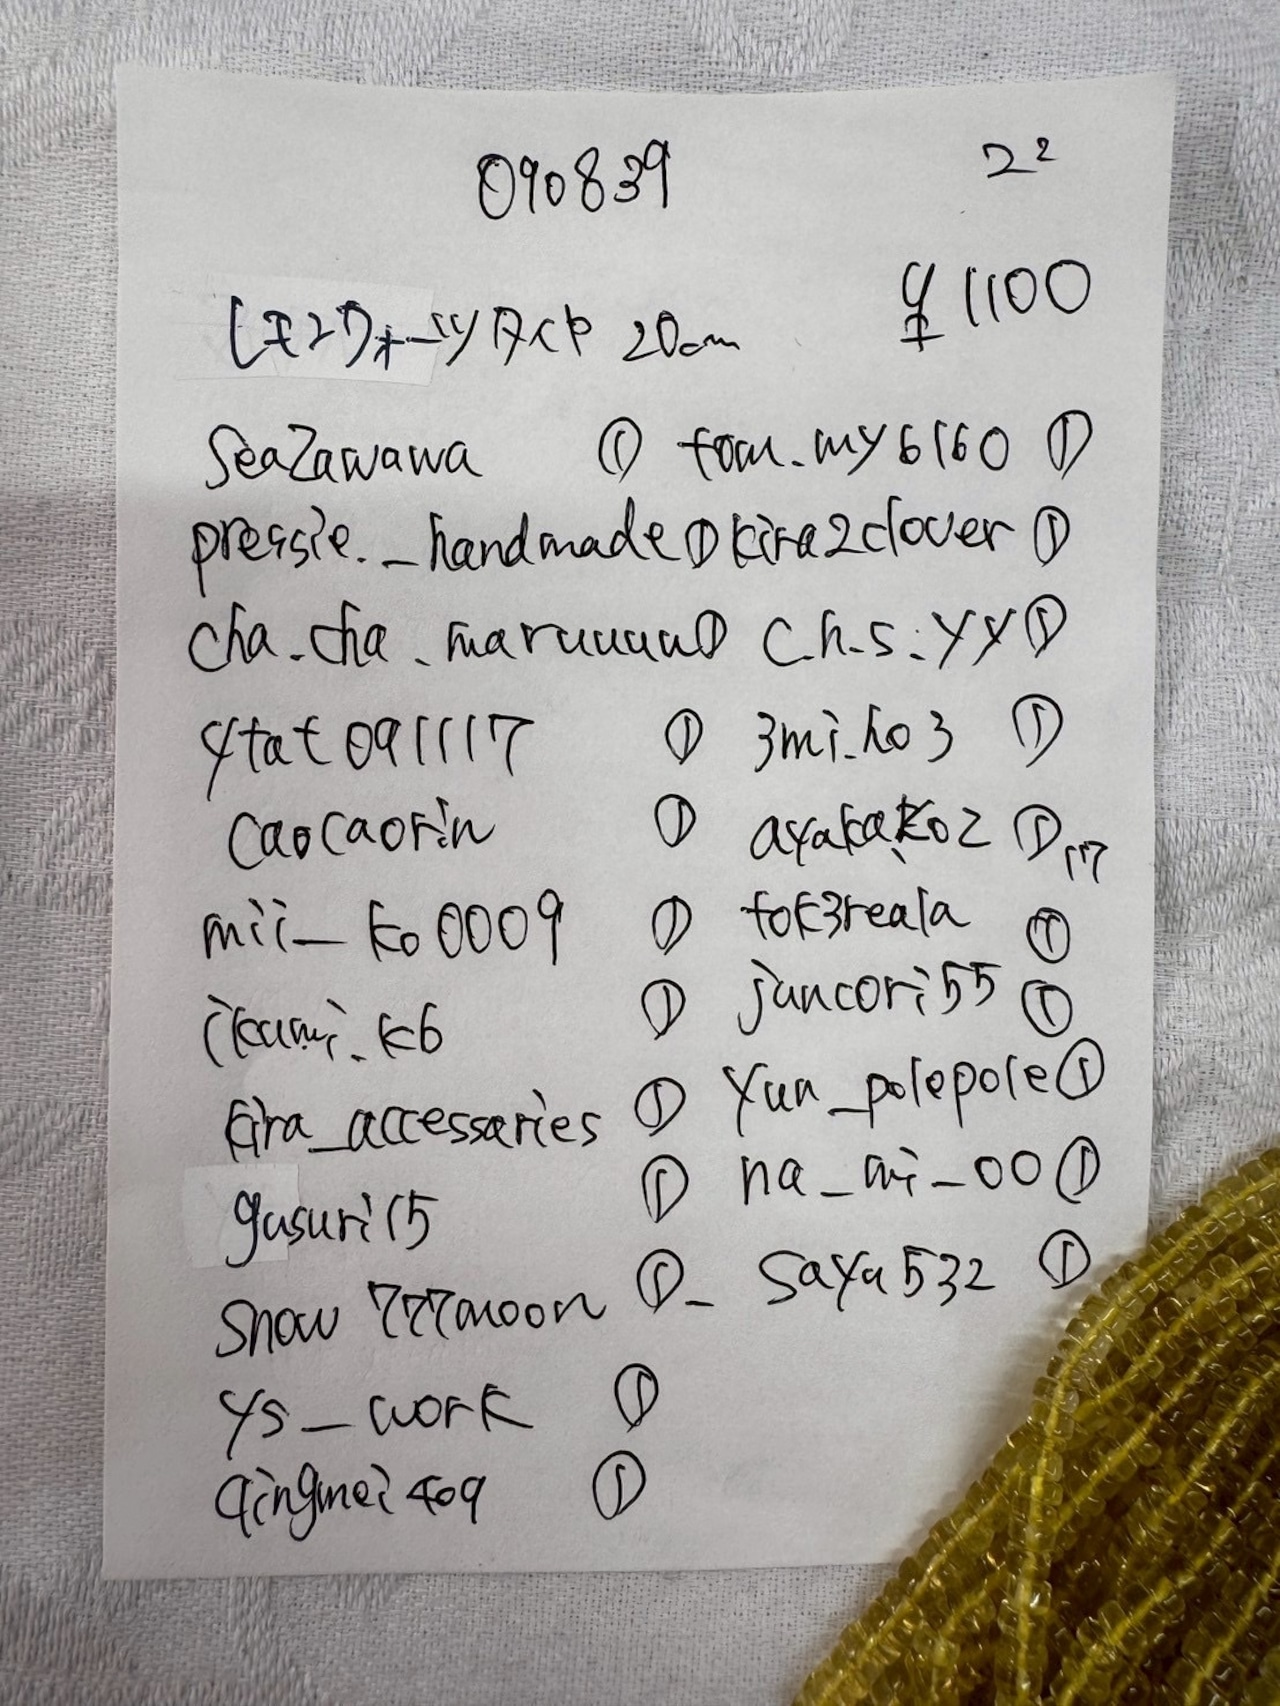 090839
2²
¥1100
レモンクォーツタイプ 20cm
Seazawawa ①
pressie._handmade ①
cha.cha.maruuuu ①
ytat091117 ①
caocaorin ①
mii_ko0009 ①
ikumi.k6 ①
kira_accessaries ①
gusuri15 ①
snow777moon ①
ys_work ①
qingmei409 ①
tom.my6160 ①
kira2clover ①
c.h.s.yy ①
3mi.ho3 ①
ayakako2 ①
tok3reala ①
juncori55 ①
yun_polepole ①
na_mi_00 ①
_saya532 ①